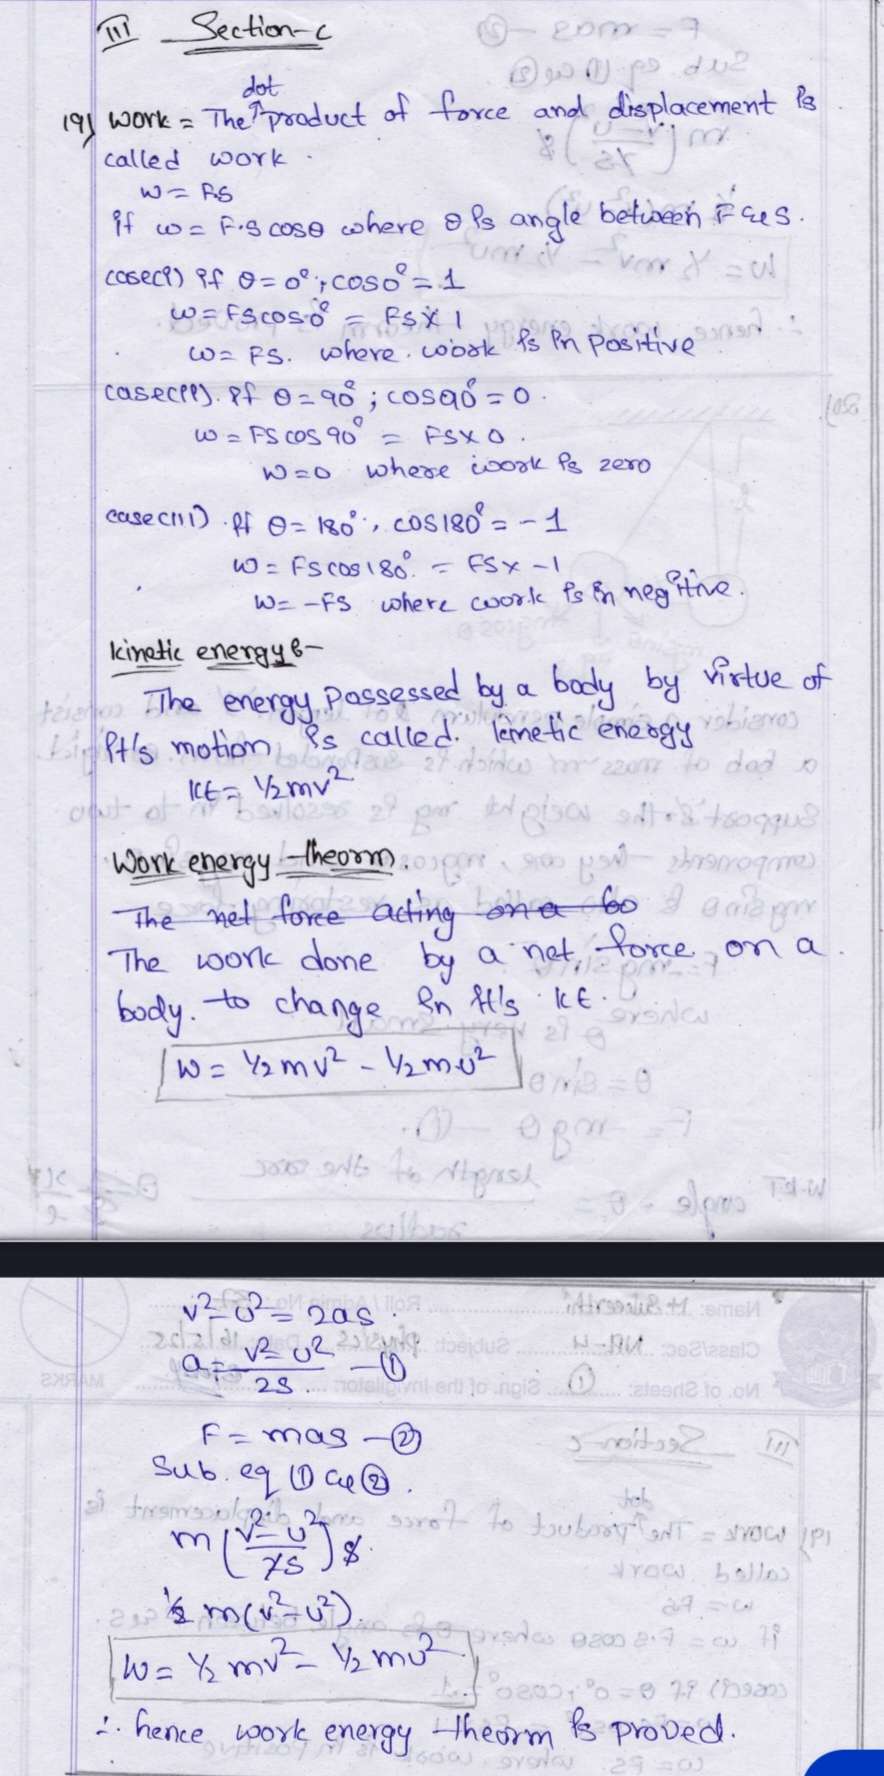 III Section-c
dot
19) Work = The ↑ product of force and displacement is
called work.
W = F.S
if W = F.S cosθ where θ is angle between F & S.
case(i) if θ = 0°; cos0° = 1
W = FS cos0° = FS × 1
W = FS. where work is in positive
case(ii). if θ = 90°; cos90° = 0.
W = FS cos 90° = FS × 0.
W = 0 where work is zero
case(iii). if θ = 180°, cos180° = -1
W = FS cos180°. = FS × -1
W = -FS where work is in negitive.
kinetic energy :-
The energy possessed by a body by virtue of
it's motion is called. kinetic energy
KE = 1/2 mv²
Work energy theorm.
The net force acting on a bo
The work done by a net force on a
body. to change in it's KE.
W = 1/2 mv² - 1/2 mu²
v² - u² = 2as.
a = v² - u² / 2s - ①
F = mas - ②
Sub. eq ① & ②.
m (v² - u² / 2s) s.
1/2 m(v² - u²).
W = 1/2 mv² - 1/2 mu²
∴ hence work energy theorm is proved.